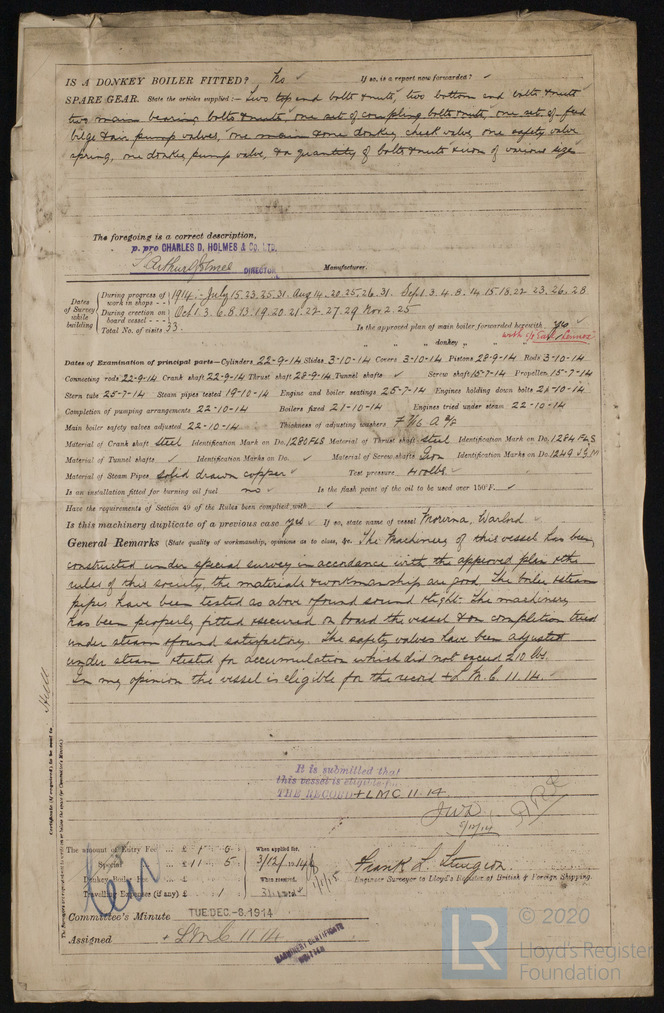 IS A DONKEY BOILER FITTED? No ✓ If so, is a report now forwarded? ✓
SPARE GEAR. State the articles supplied:— Two top end bolts & nuts, two bottom end bolts & nuts
two main bearing bolts & nuts, one set of coupling bolts & nuts, one set of feed
bilge & air pump valves, one main & one donkey check valve, one safety valve
spring, one donkey pump valve, & a quantity of bolts & nuts & iron of various sizes
The foregoing is a correct description,
p. pro CHARLES D. HOLMES & Co. LTD.
DIRECTOR Manufacturer.
Dates of Survey while building
During progress of work in shops - - 1914. July 15. 23. 25. 31. Aug 14. 20. 25. 26. 31. Sept 1. 3. 4. 8. 14. 15. 18. 22 23. 26. 28
During erection on board vessel - - - Oct 1. 3. 6. 8. 13. 19. 20. 21. 22. 27. 29. Nov 2. 25
Total No. of visits 33. Is the approved plan of main boiler forwarded herewith Yes
" " " donkey " " with
Dates of Examination of principal parts—Cylinders 22-9-14 Slides 3-10-14 Covers 3-10-14 Pistons 28-9-14 Rods 3-10-14
Connecting rods 22-9-14 Crank shaft 22-9-14 Thrust shaft 28-9-14 Tunnel shafts ✓ Screw shaft 15-7-14 Propeller 15-7-14
Stern tube 25-7-14 Steam pipes tested 19-10-14 Engine and boiler seatings 25-7-14 Engines holding down bolts 21-10-14
Completion of pumping arrangements 22-10-14 Boilers fixed 21-10-14 Engines tried under steam 22-10-14
Main boiler safety valves adjusted 22-10-14 Thickness of adjusting washers
Material of Crank shaft steel Identification Mark on Do. 1280 FLS Material of Thrust shaft steel Identification Mark on Do. 1284 FLS
Material of Tunnel shafts ✓ Identification Marks on Do. ✓ Material of Screw shafts Iron Identification Marks on Do. 1249
Material of Steam Pipes solid drawn copper ✓ Test pressure 400 lbs ✓
Is an installation fitted for burning oil fuel no ✓ Is the flash point of the oil to be used over 150°F. ✓
Have the requirements of Section 49 of the Rules been complied with ✓
Is this machinery duplicate of a previous case yes ✓ If so, state name of vessel Warlord
General Remarks (State quality of workmanship, opinions as to class, &c. The Machinery of this vessel has been
constructed under special survey in accordance with the approved plan & the
rules of this society, the materials & workmanship are good. The boiler & steam
pipes have been tested as above & found sound & tight. The machinery
has been properly fitted & secured on board the vessel & on completion tried
under steam & found satisfactory. The safety valves have been adjusted
under steam & tested for accumulation which did not exceed 210 lbs.
In my opinion the vessel is eligible for the record + L.M.C. 11.14.
Hull
Certificate (if required) to be sent to
It is submitted that
this vessel is eligible for
THE RECORD + LMC 11.14.
The amount of Entry Fee ... £
Special ... £ 11 5
Donkey Boiler Fee ... £
Travelling Expenses (if any) £ 1
When applied for,
3/12/1914
When received,
Frank L. Sturgeon.
Engineer Surveyor to Lloyd's Register of British & Foreign Shipping.
Committee's Minute TUE. DEC. -8. 1914
Assigned + L.M.C. 11.14
MACHINERY CERTIFICATE
WRITTEN
LR
© 2020
Lloyd's Register
Foundation